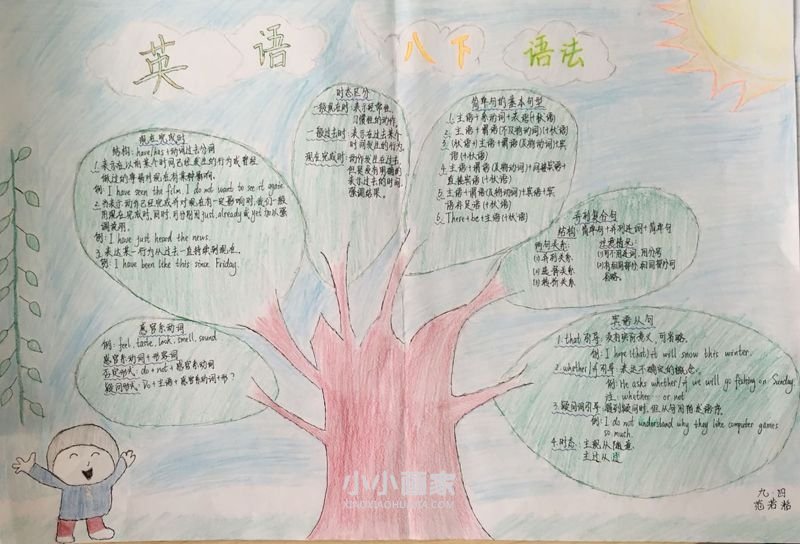 英语
八下 语法
现在完成时
结构: have/has+动词过去分词
1.表示在以前某个时间已经发生的行为或曾经
做过的事情对现在有某种影响。
例: I have seen the film. I do not want to see it again
2.当表示动作已经完成并对现在有一定影响时,我们一般
用现在完成时,同时,可分别用just, already或yet加以强
调或使用。
例: I have just heard the news.
3.表达某一行为从过去一直持续到现在。
例: I have been like this since Friday.
时态区分
一般现在时:表示经常性、
习惯性的动作。
一般过去时:表示在过去某个
时间发生的行为。
现在完成时:动作发生在过去,
但是没有明确的
表示过去的时间,
强调结果。
简单句的基本句型
1.主语+系动词+表语(+状语)
2.主语+谓语(不及物动词)(+状语)
3.(状语+)主语+谓语(及物动词)+宾
语(+状语)
4.主语+谓语(及物动词)+间接宾语+
直接宾语(+状语)
5.主语+谓语(及物动词)+宾语+宾
语补足语(+状语)
6.There+be+主语(+状语)
并列复合句
结构:简单句+并列连词+简单句
两句关系:
(1)并列关系
(2)选择关系
(3)转折关系
注意情况:
(1)可不用连词,用分号
(2)有相同部分,相同部分可
省略。
感官系动词
例: feel, taste, look, smell, sound
感官系动词+形容词
否定形式: do+not+感官系动词
疑问形式: Do+主语+感官系动词+形?
宾语从句
1.that引导:没有实际意义,可省略。
例: I hope (that) it will snow this winter.
2.whether/if引导:表达不确定的概念。
例: He asks whether/if we will go fishing on Sunday.
注: whether or not
3.疑问词引导:遇到疑问时,但从句用陈述语序。
例: I do not understand why they like computer games
so much.
4.时态:主现从随意,
主过从过
小小画家
XIAOXIAOHUAJIA.COM
九·四
范若